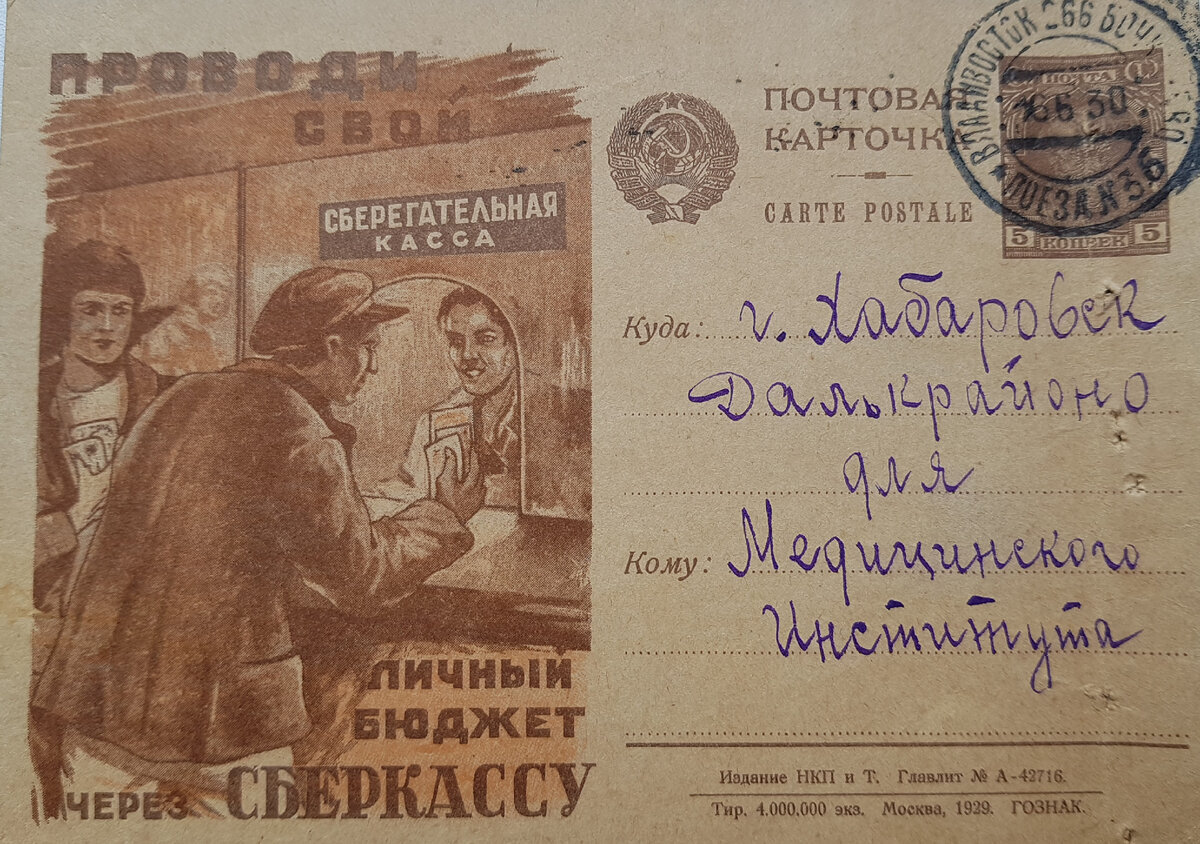 ПРОВОДИ
СВОЙ
СБЕРЕГАТЕЛЬНАЯ
КАССА
ЛИЧНЫЙ
БЮДЖЕТ
ЧЕРЕЗ СБЕРКАССУ
ПОЧТОВАЯ
КАРТОЧКА
CARTE POSTALE
ПОЧТА
5 КОПЕЕК 5
ВЛАДИВОСТОК 266
16 6 30
ПОЕЗДА N 36
Куда: г. Хабаровск
Далькрайоно
для
Кому: Медицинского
Института
Издание НКП и Т. Главлит № А-42716.
Тир. 4.000.000 экз. Москва, 1929. ГОЗНАК.